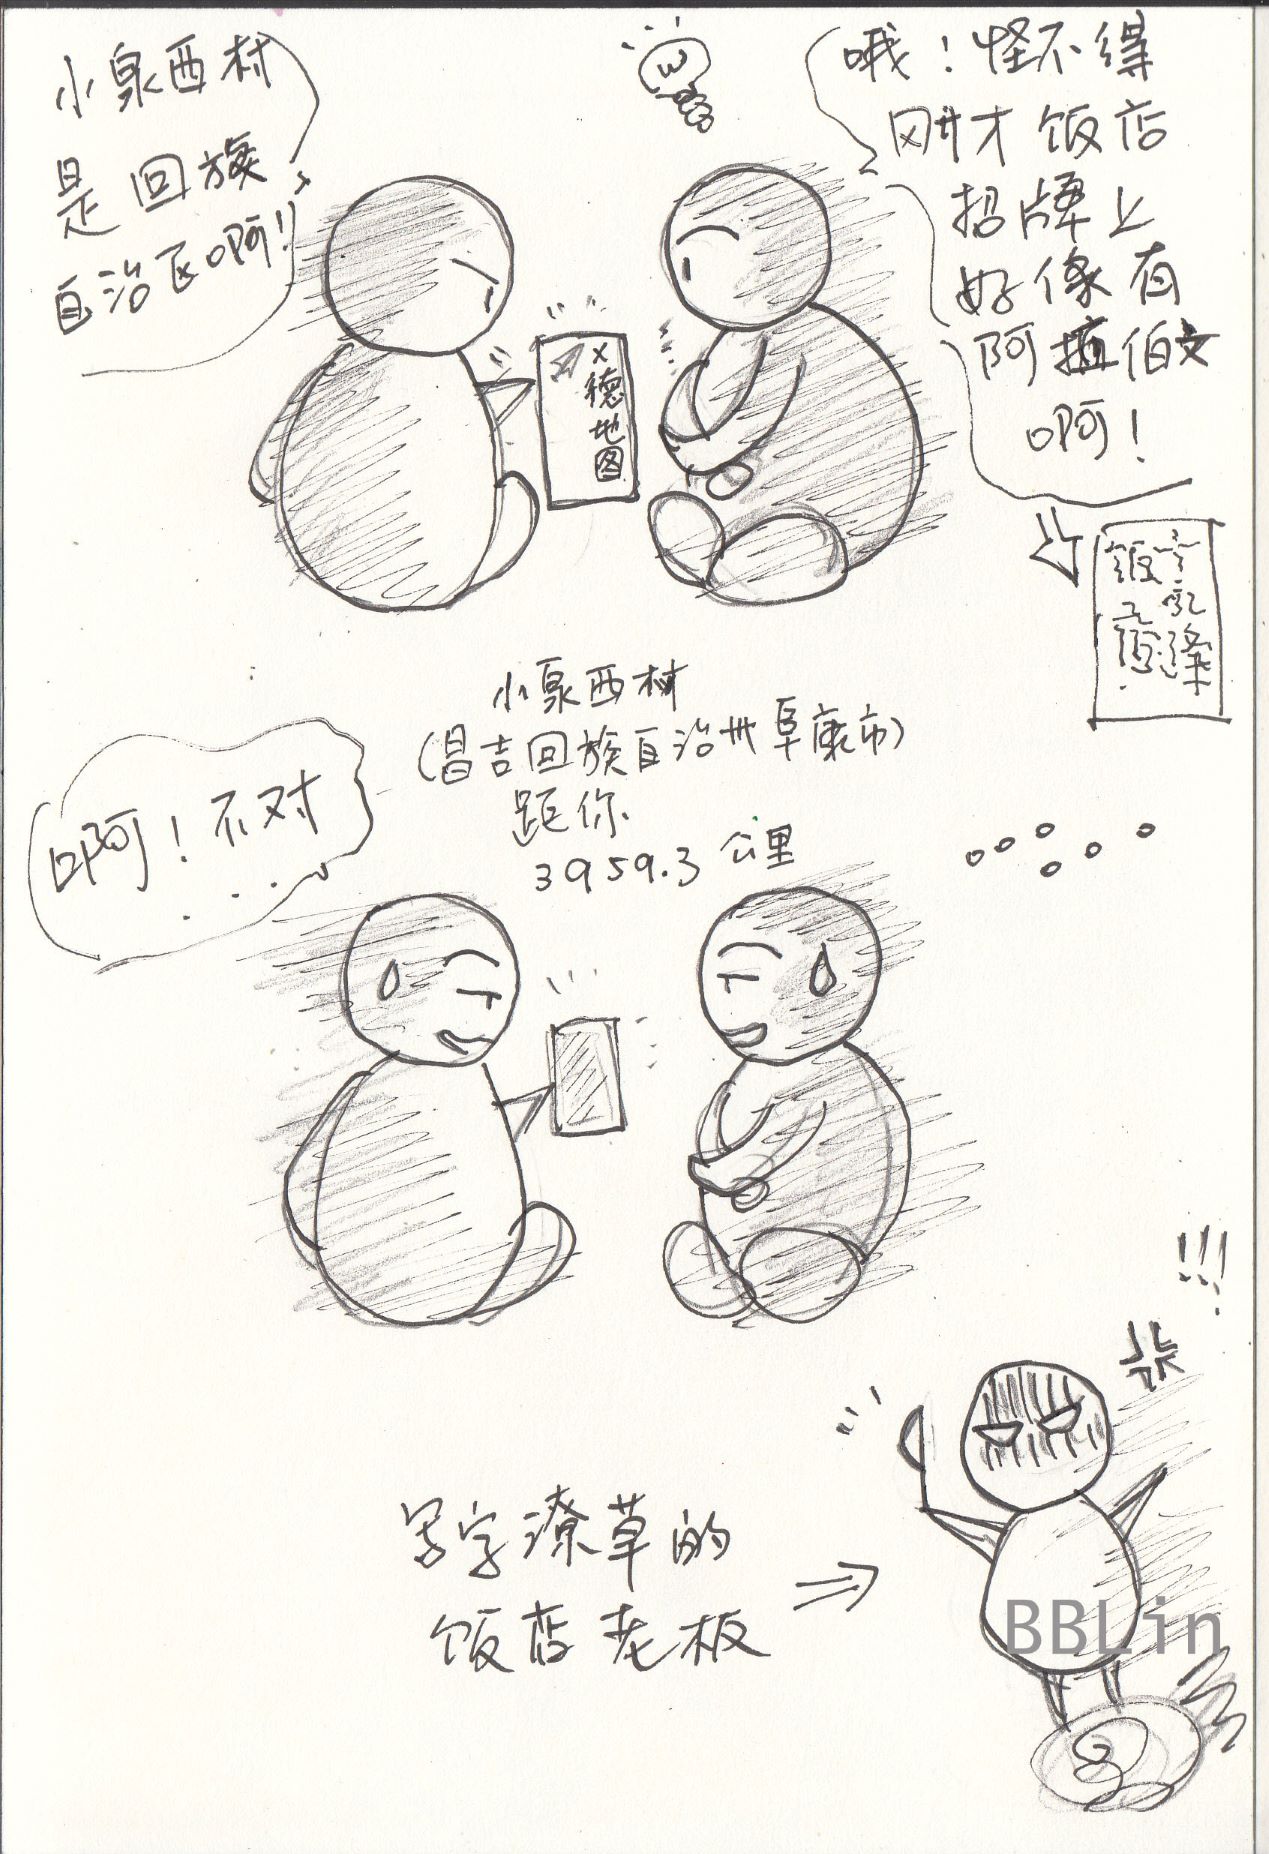 小泉西村
是回族
自治区啊!
哦!怪不得
刚才饭店
招牌上
好像有
阿拉伯文
啊!
X德地图
小泉西村
(昌吉回族自治州阜康市)
距你
3959.3公里
啊!不对
...
!!!
写字潦草的
饭店老板
BBLin